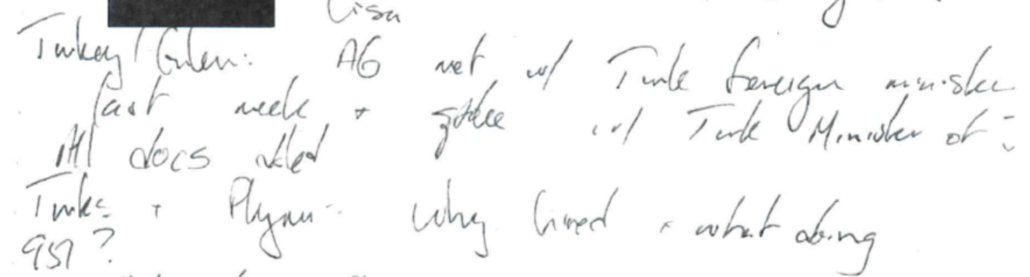 Lisa
Turkey/Gulen: AG met w/ Turk foreign minister
last week + spoke w/ Turk Minister of J
All docs
Turks + Flynn - why hired + what doing
951?